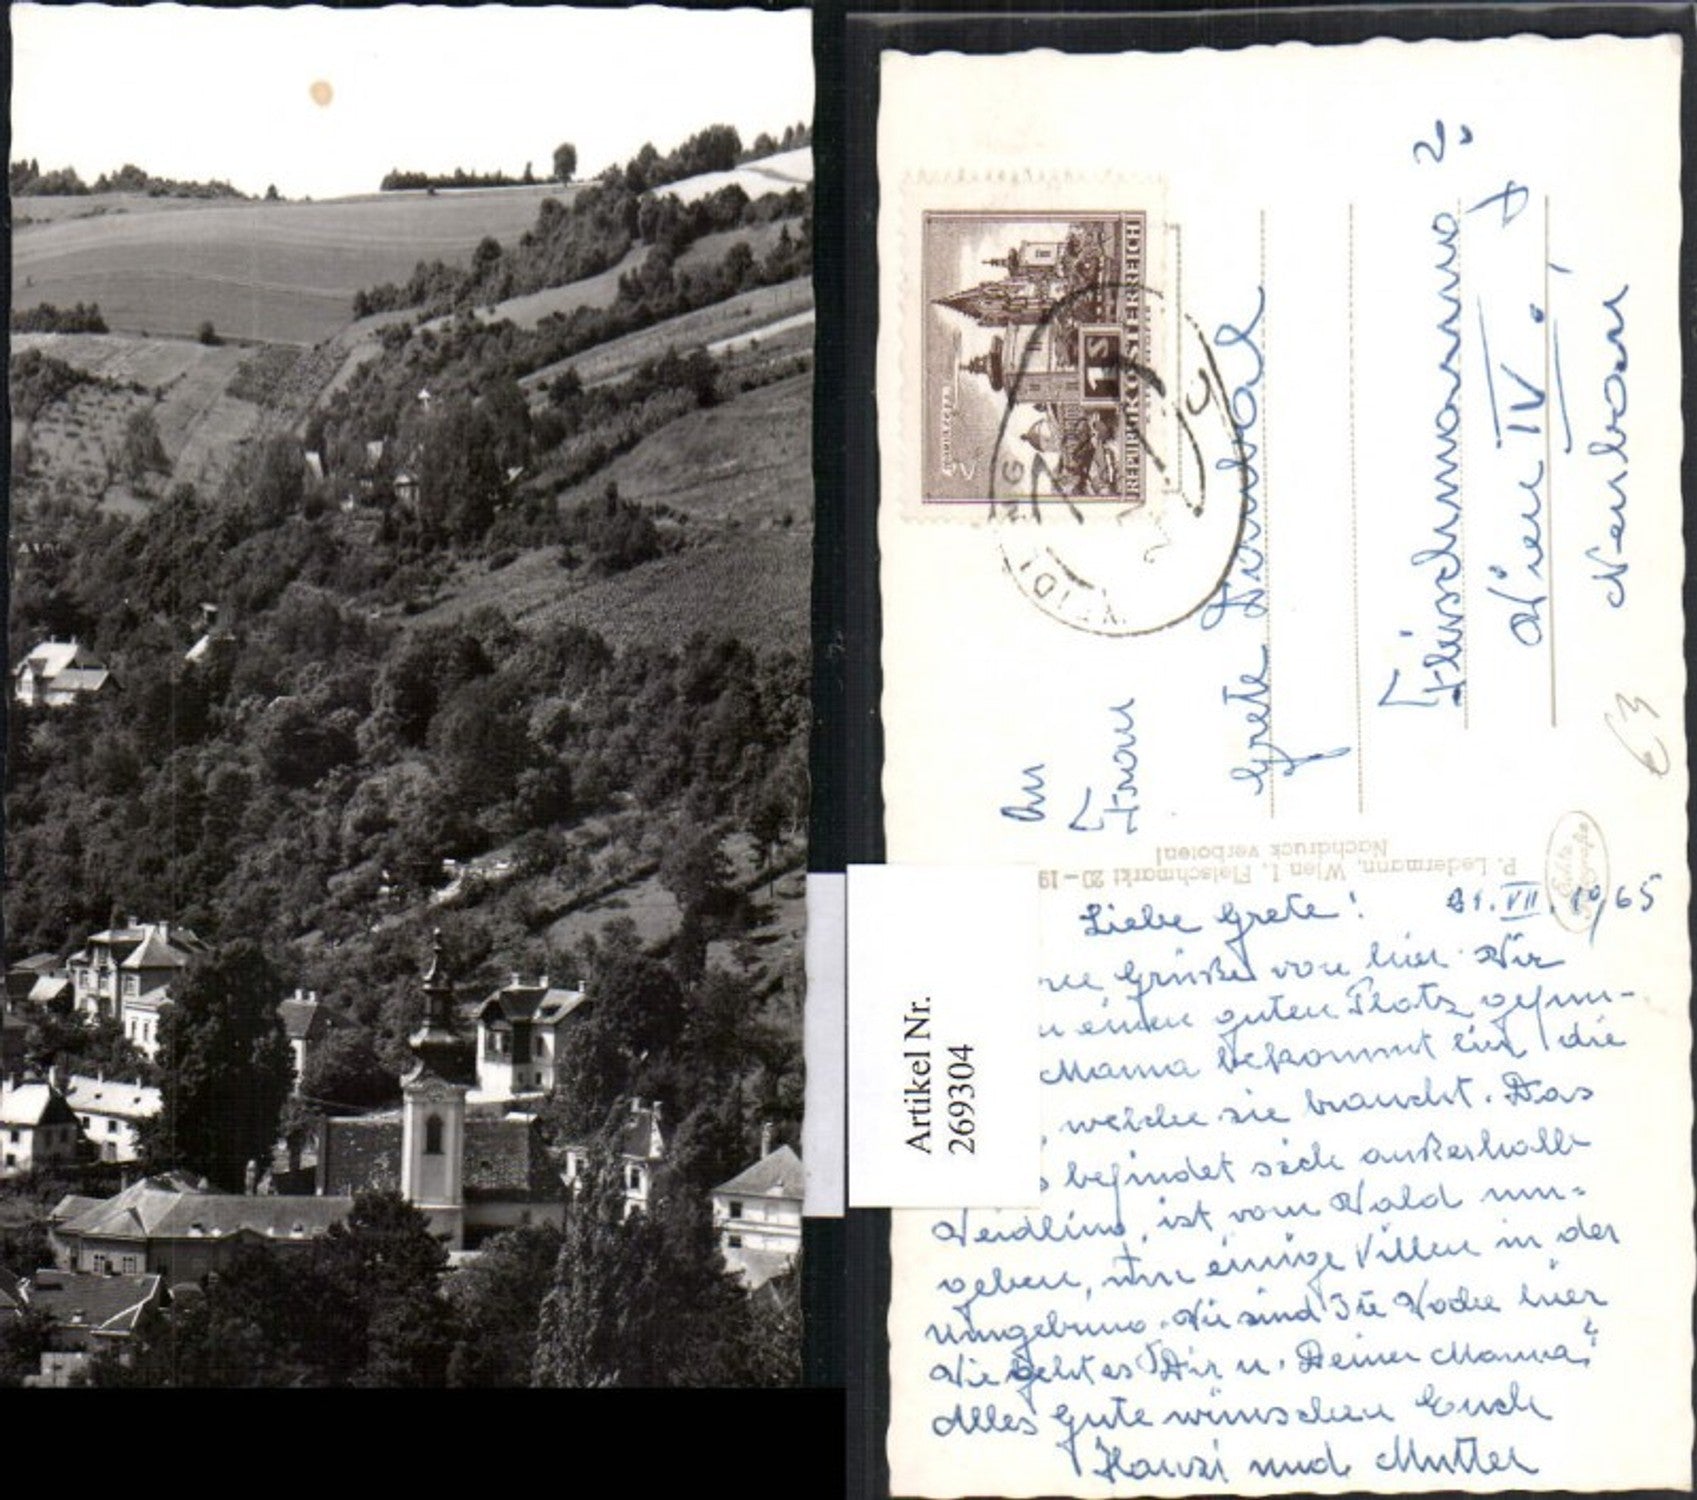 REPUBLIK ÖSTERREICH
1 S
WEIDLING
An
Frau
Grete
2.
Wien IV.
P. Ledermann, Wien I., Fleischmarkt 20–19
Nachdruck verboten!
Echte Fotografie
€3
Artikel Nr.
269304
VII. 1965
Liebe Grete!
Grüße von hier. Wir
einen guten Platz gefun-
Mama bekommt hier die
, welche sie braucht. Das
befindet sich außerhalb
Weidling, ist vom Wald um-
geben, nur einige Villen in der
Umgebung. Wir sind Woche hier
Wie geht es Dir u. Deiner Mama?
Alles Gute wünschen Euch
Hansi und Mutter